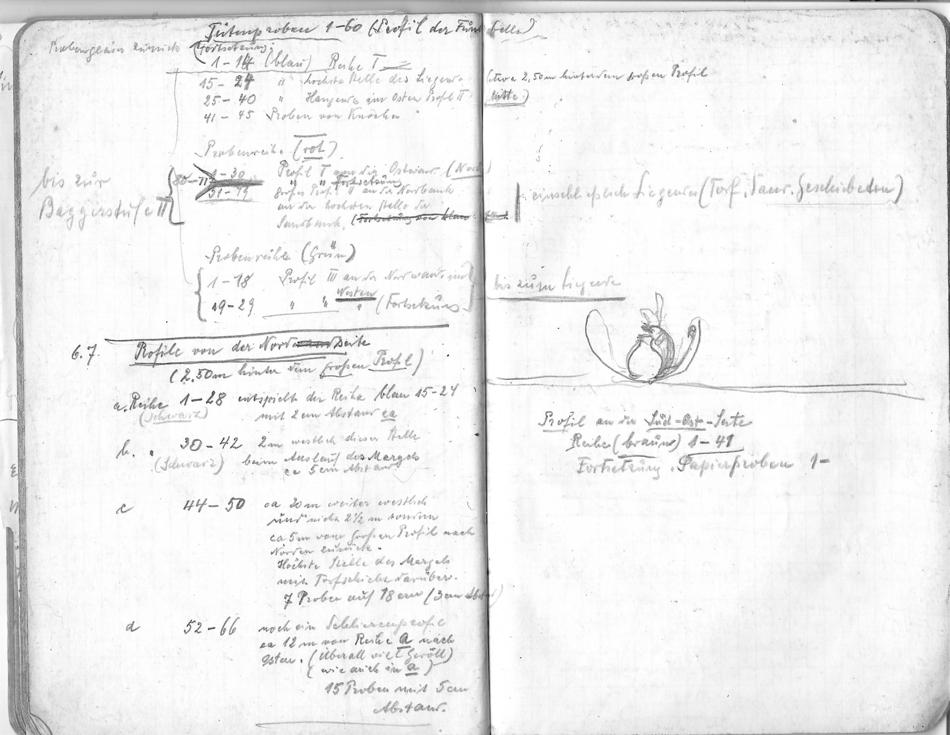 Tütenproben 1-60 (Profil der Fundstelle)
Probengläser zurück (Fortsetzung:
1-14 (blau) Reihe I
15-24 " höchste Stelle des Liegend (etwa 2,50m hinter dem großen Profil
25-40 " Hangende im Osten Profil II Mitte)
41-45 Proben von Knochen
Probenreihe (rot)
1-30 Profil I an die Ostwand (Nord
bis zur 80-117 31-79 großes Profil II an die Nordbank einschließlich Liegendes (Torf, Sand, Geschiebeton)
Baggerstufe II an der höchsten Stelle der
Sandbank, (Fortsetzung von blau
Probenreihe (Grün)
1-18 Profil III an der Nordwand und bis zum Liegende
Westen
19-29 " " " (Fortsetzung
6.7. Profile von der Nordseite
(2,50m hinter dem großen Profil)
a. Reihe 1-28 entspricht der Reihe blau 15-24
(Schwarz) mit 2cm Abstand ca
b. " 30-42 2m westlich dieser Stelle
(Schwarz) beim Auslauf des Mergels
ca 5cm Abstand
c 44-50 ca 20m weiter westlich
und nicht 2½ m sondern
ca 5m vom großen Profil nach
Norden zurück.
Höchste Stelle des Mergels
mit Torfschicht darüber.
7 Proben auf 18cm (3cm Abstand)
d 52-66 noch ein Schlierenprofil
ca 12m von Reihe a nach
Osten. (Überall viel Geröll)
(wie auch in a)
15 Proben mit 5cm
Abstand.
Profil an der Süd-Ost-Seite
Reihe (braun) 1-41
Fortsetzung. Papierproben 1-